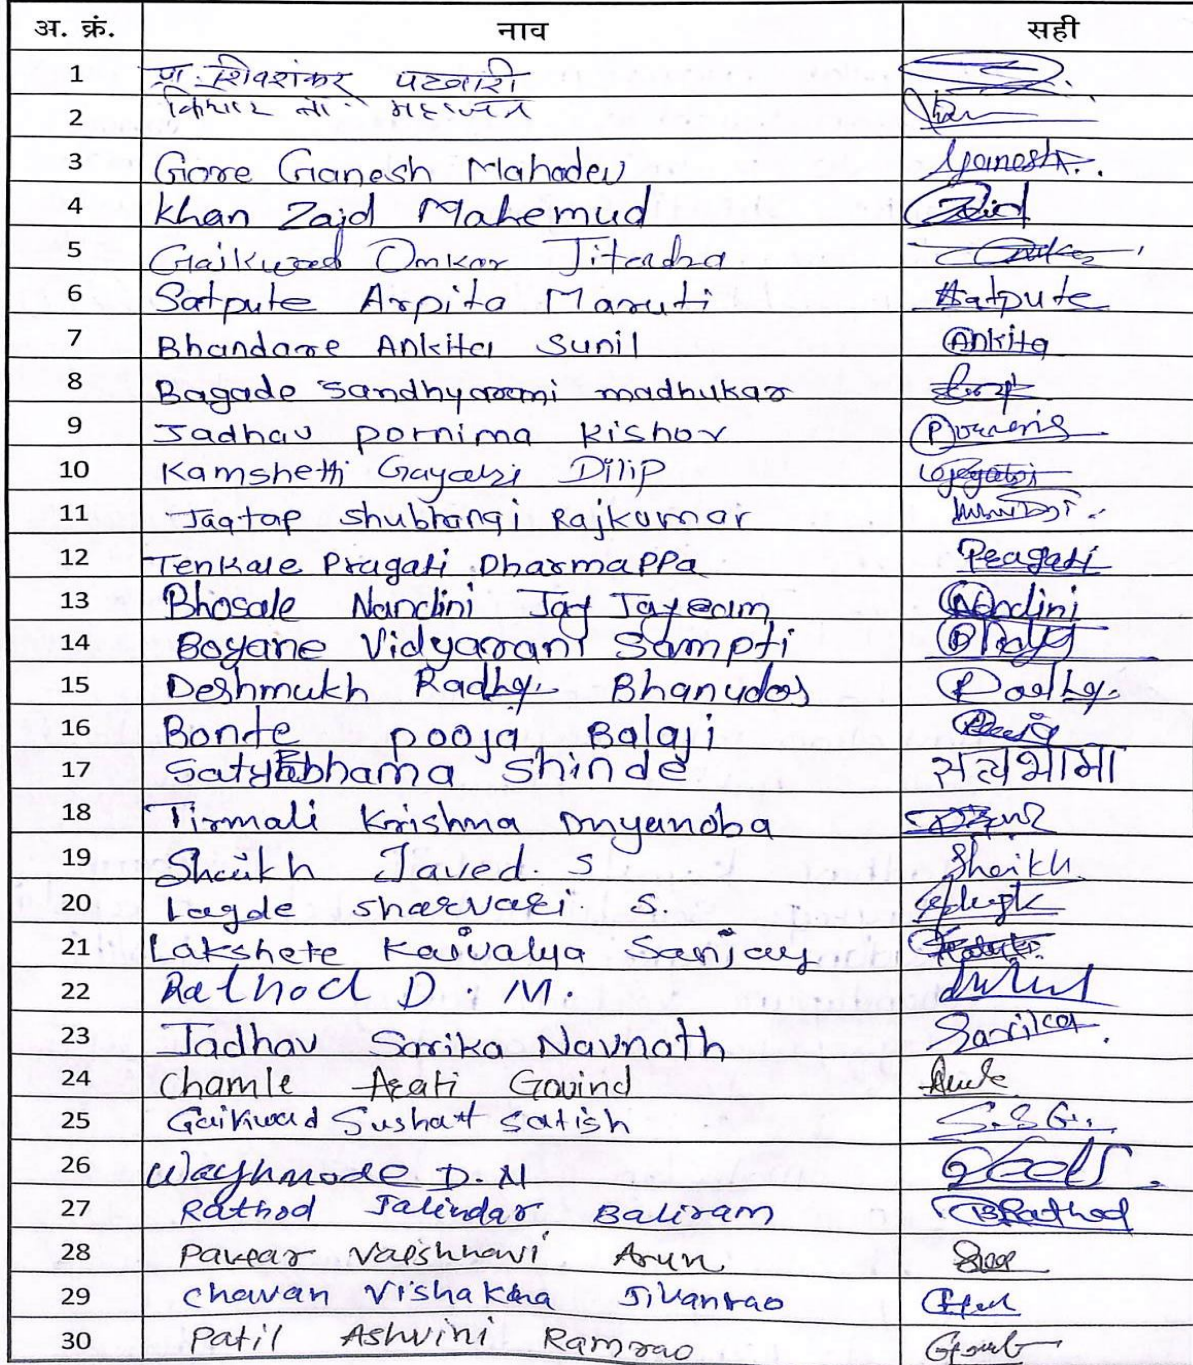 अ. क्रं. नाव सही
1 प्रा. शिवशंकर पटवारी
2 महाजन
3 Gore Ganesh Mahadev Ganesh..
4 Khan Zaid Mahemud Zaid
5 Gaikwad Omkar Jitendra
6 Satpute Arpita Maruti Satpute
7 Bhandare Ankita Sunil Ankita
8 Bagade Sandhyarani madhukar
9 Jadhav Pornima Kishor
10 Kamshetti Gayatri Dilip
11 Jagtap Shubhangi Rajkumar
12 Tenkale Pragati Dharmappa Pragati
13 Bhosale Nandini Jay Jayram Nandini
14 Boyane Vidyarani Sampti
15 Deshmukh Radhy. Bhanudas Radhy.
16 Bonte pooja Balaji
17 Satyabhama Shinde सत्यभामा
18 Tirmali Krishna Dnyanoba
19 Shaikh Javed. S Shaikh.
20 Lagde sharvari. S.
21 Lakshete Kaivalya Sanjay
22 Rathod D. M.
23 Jadhav Sarika Navnath Sarika
24 Chamle Arati Govind
25 Gaikwad Sushant Satish S.S.G..
26 Waghmode D. N
27 Rathod Jalindar Baliram Rathod
28 Pawar Vaishnavi Arun
29 Chavan Vishakha Jivanrao
30 Patil Ashvini Ramrao